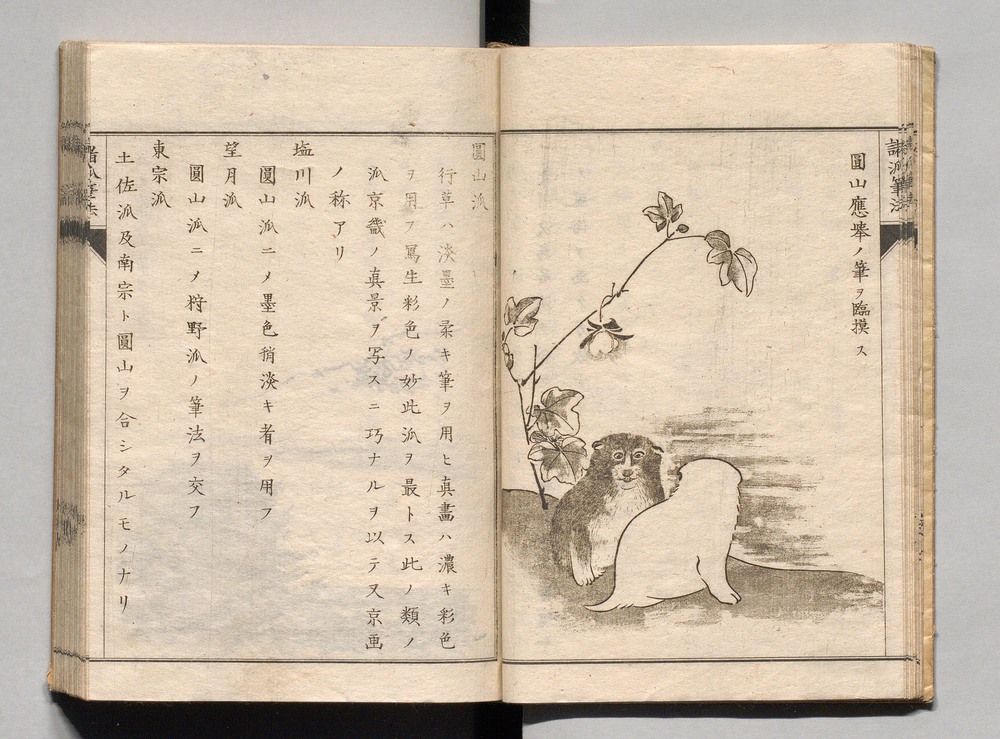 諸派筆法
圓山應挙ノ筆ヲ臨摸ス
圓山派
行草ハ淡墨ノ柔キ筆ヲ用ヒ真畵ハ濃キ彩色
ヲ用フ写生彩色ノ妙此派ヲ最トス此ノ類ノ
派京畿ノ真景ヲ写スニ巧ナルヲ以テ又京画
ノ称アリ
塩川派
圓山派ニメ墨色稍淡キ者ヲ用フ
望月派
圓山派ニメ狩野派ノ筆法ヲ交フ
東宗派
土佐派及南宗ト圓山ヲ合シタルモノナリ